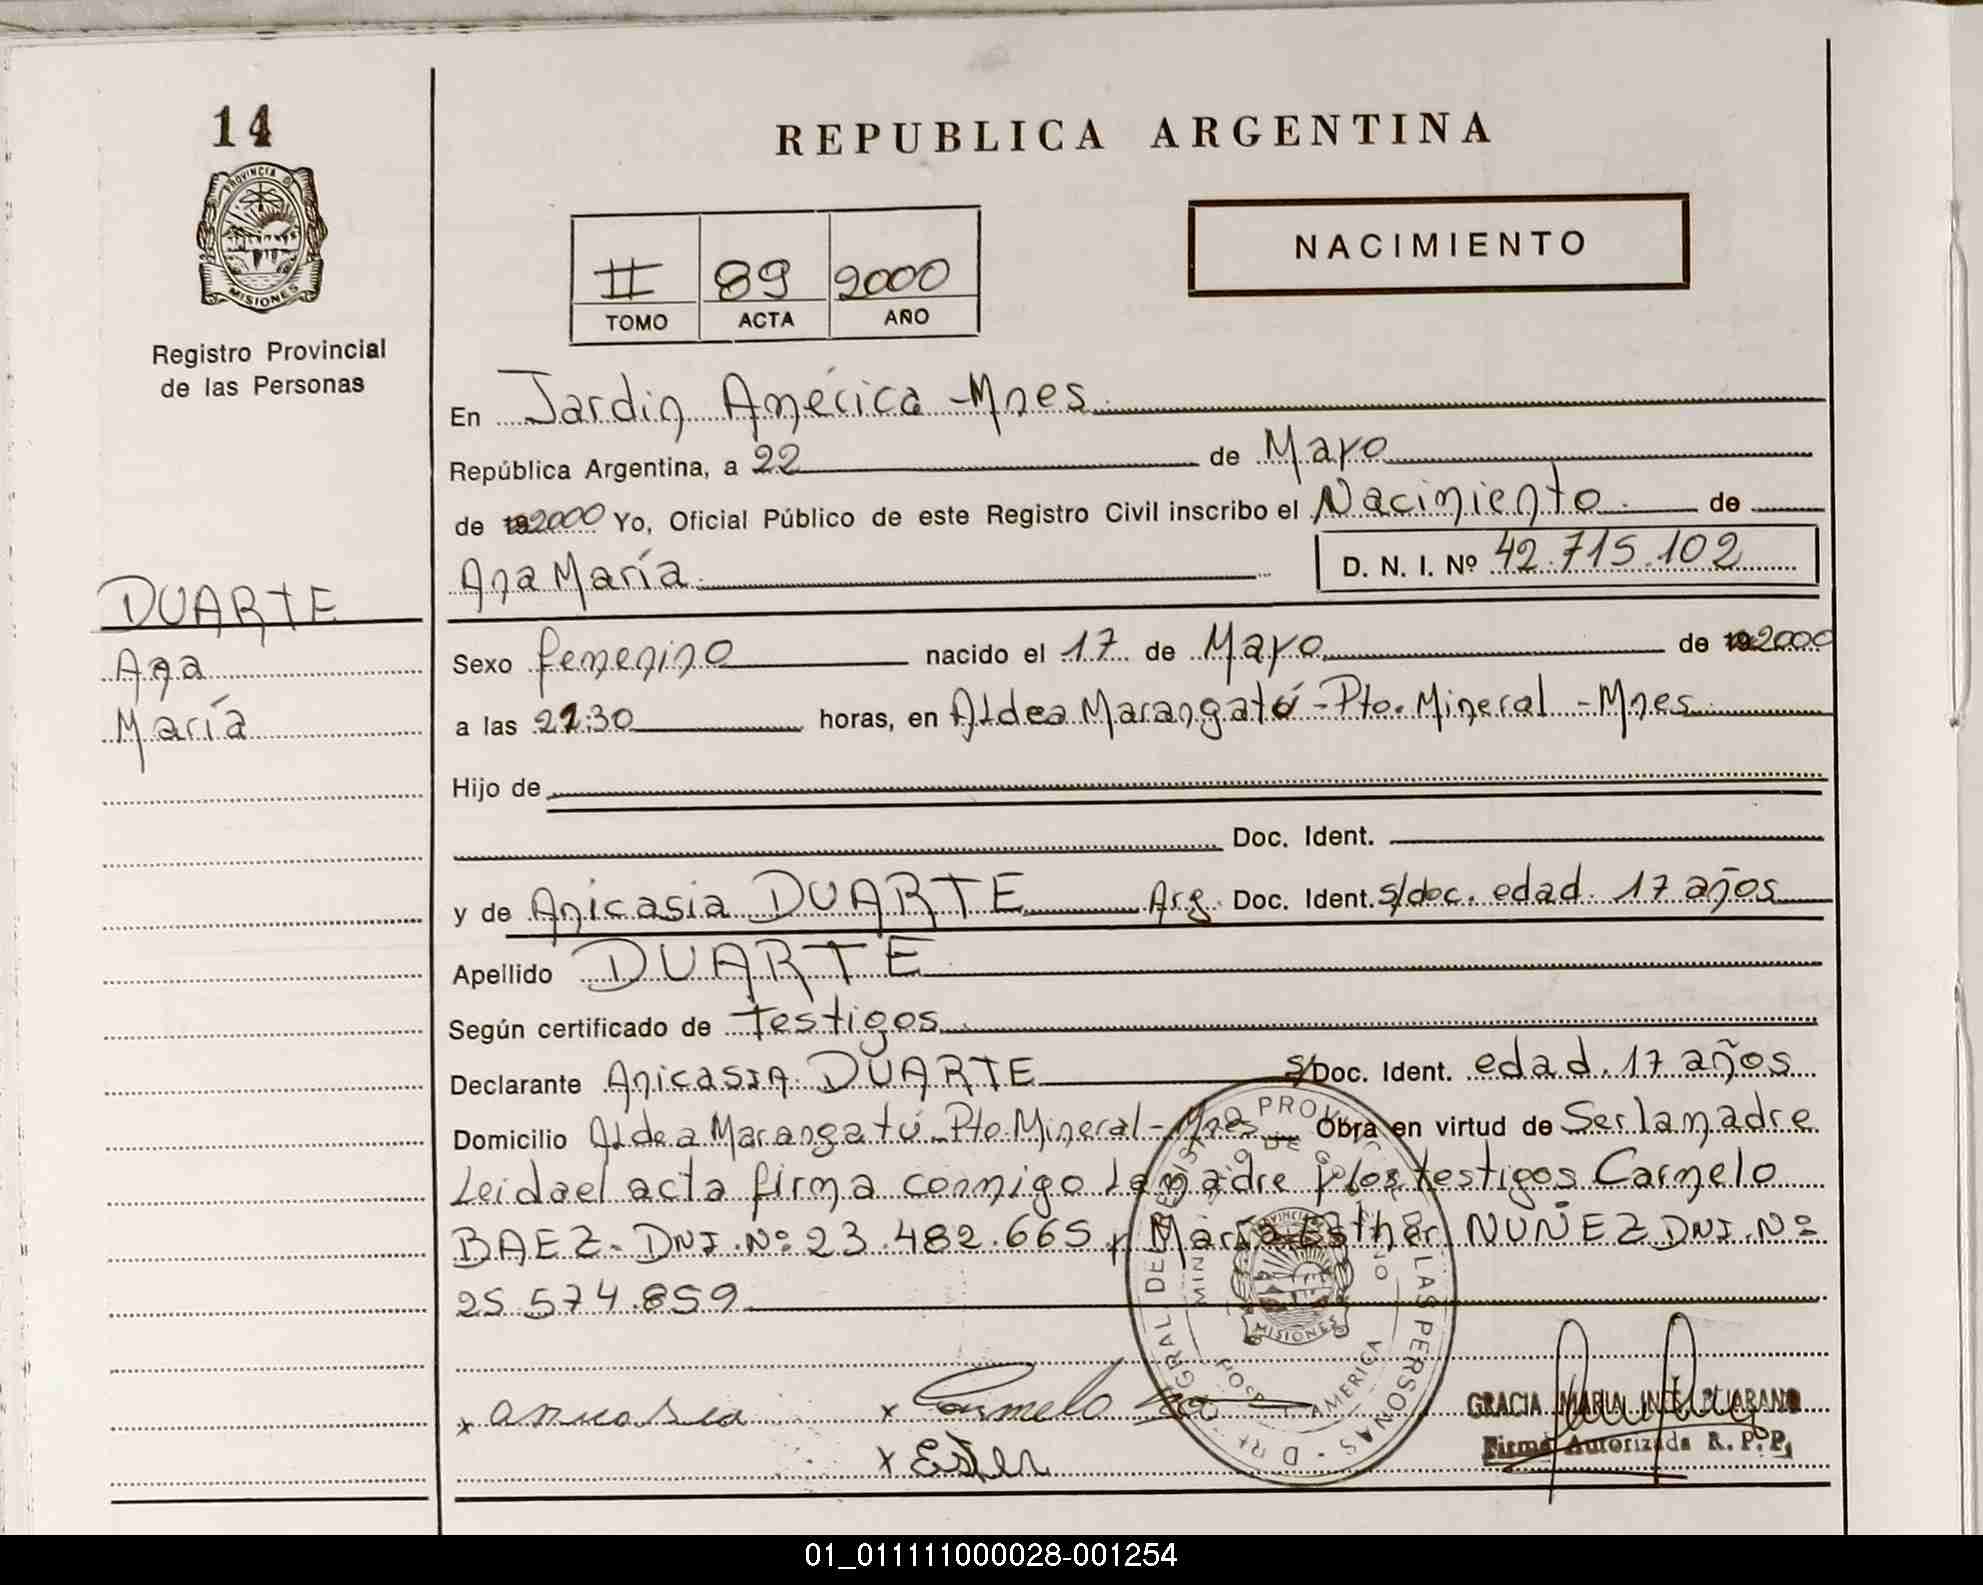 14
REPUBLICA ARGENTINA
PROVINCIA D
MISIONES
NACIMIENTO
II 89 2000
TOMO ACTA AÑO
Registro Provincial
de las Personas
En Jardin América - Mnes.
República Argentina, a 22 de Mayo
de 2000 Yo, Oficial Público de este Registro Civil inscribo el Nacimiento de
Ana María
D. N. I. Nº 42.715.102
DUARTE
Ana
María
Sexo femenino nacido el 17 de Mayo de 2000
a las 21:30 horas, en Aldea Marangatú - Pto. Mineral - Mnes.
Hijo de
Doc. Ident.
y de Anicasia DUARTE Arg. Doc. Ident. s/doc. edad. 17 años
Apellido DUARTE
Según certificado de testigos
Declarante Anicasia DUARTE s/Doc. Ident. edad. 17 años
Domicilio Aldea Marangatú - Pto Mineral - Mnes Obra en virtud de Ser la madre
Leida el acta firma conmigo la madre y los testigos Carmelo
BAEZ - DNI. Nº 23.482.665 y María Esther NUÑEZ DNI. Nº
25.574.859
MISIONES
AMERICA
x anicasia x Carmelo
x Ester
GRACIA MARIA INES
Firma Autorizada R. P. P.
01_011111000028-001254